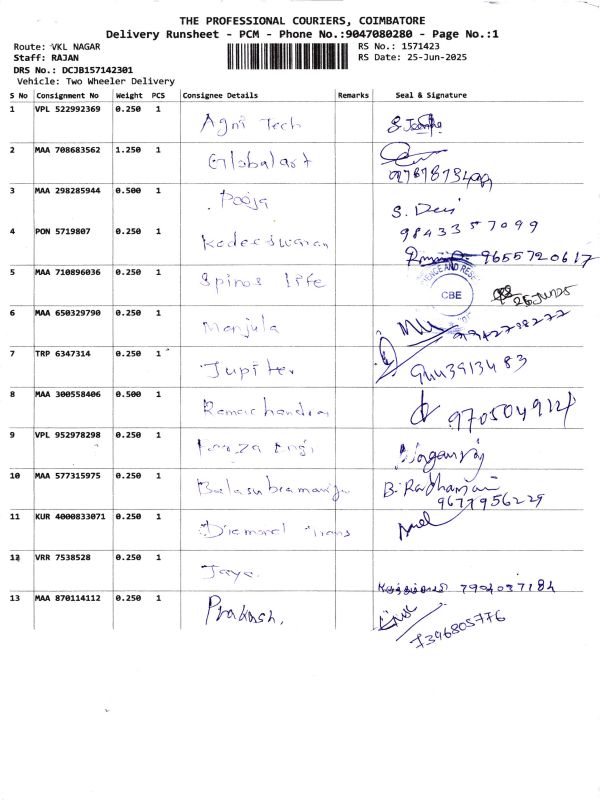 THE PROFESSIONAL COURIERS, COIMBATORE
Delivery Runsheet - PCM - Phone No.:9047080280 - Page No.:1
Route: VKL NAGAR
RS No.: 1571423
Staff: RAJAN
RS Date: 25-Jun-2025
DRS No.: DCJB157142301
Vehicle: Two Wheeler Delivery
S No Consignment No Weight PCS Consignee Details Remarks Seal & Signature
1 VPL 522992369 0.250 1 Agni Tech
2 MAA 708683562 1.250 1 Globalart
3 MAA 298285944 0.500 1 Pooja S. Devi
9843357099
4 PON 5719807 0.250 1 9655720617
5 MAA 710896036 0.250 1 Spinos life CBE 25 JUN 25
6 MAA 650329790 0.250 1 Manjula
7 TRP 6347314 0.250 1 Jupiter 9443913483
8 MAA 300558406 0.500 1 Ramachandra
9 VPL 952978298 0.250 1
10 MAA 577315975 0.250 1 B.
9677956229
11 KUR 4000833071 0.250 1 Diamond Trans
12 VRR 7538528 0.250 1 Jaya
13 MAA 870114112 0.250 1 Prakash.
7396805776